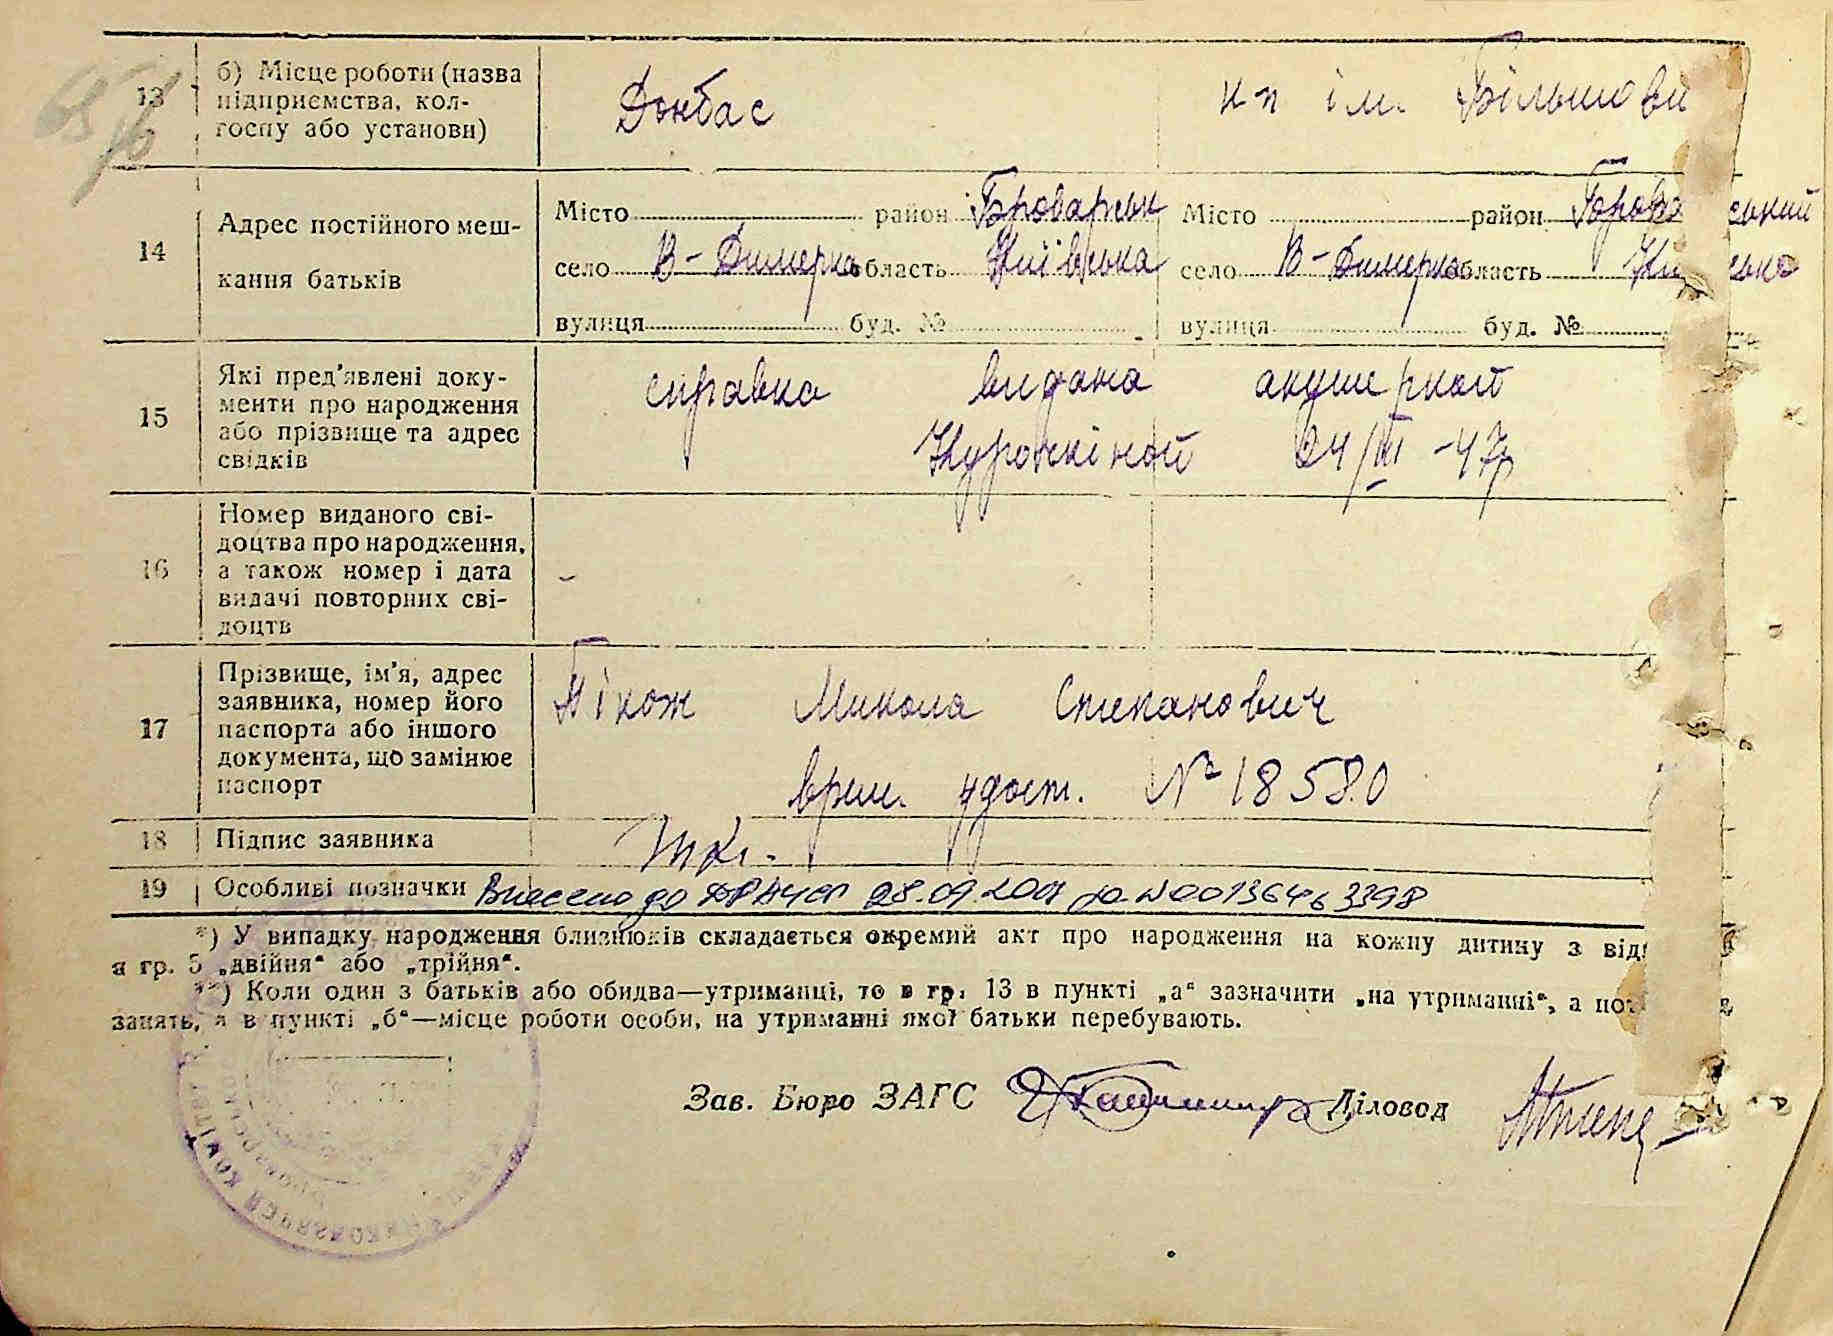 13 б) Місце роботи (назва
підприємства, кол-
госпу або установи)
Донбас
к-п ім. Більшови
14 Адрес постійного меш-
кання батьків
Місто район Броварськ
село В-Димерка область Київська
вулиця буд. №
Місто район ський
село В-Димерка область
вулиця буд. №
15 Які пред'явлені доку-
менти про народження
або прізвище та адрес
свідків
справка видана акушеркой
24/III-47р
16 Номер виданого сві-
доцтва про народження,
а також номер і дата
видачі повторних сві-
доцтв
–
17 Прізвище, ім'я, адрес
заявника, номер його
паспорта або іншого
документа, що замінює
паспорт
Микола Степанович
врем. удост. № 18580
18 Підпис заявника
19 Особливі позначки Внесено до 28.09.200
*) У випадку народження близнюків складається окремий акт про народження на кожну дитину з від
в гр. 5 „двійня“ або „трійня“.
**) Коли один з батьків або обидва—утриманці, то в гр. 13 в пункті „а“ зазначити „на утриманні“, а по
занять, а в пункті „б“—місце роботи особи, на утриманні якої батьки перебувають.
Зав. Бюро ЗАГС Діловод